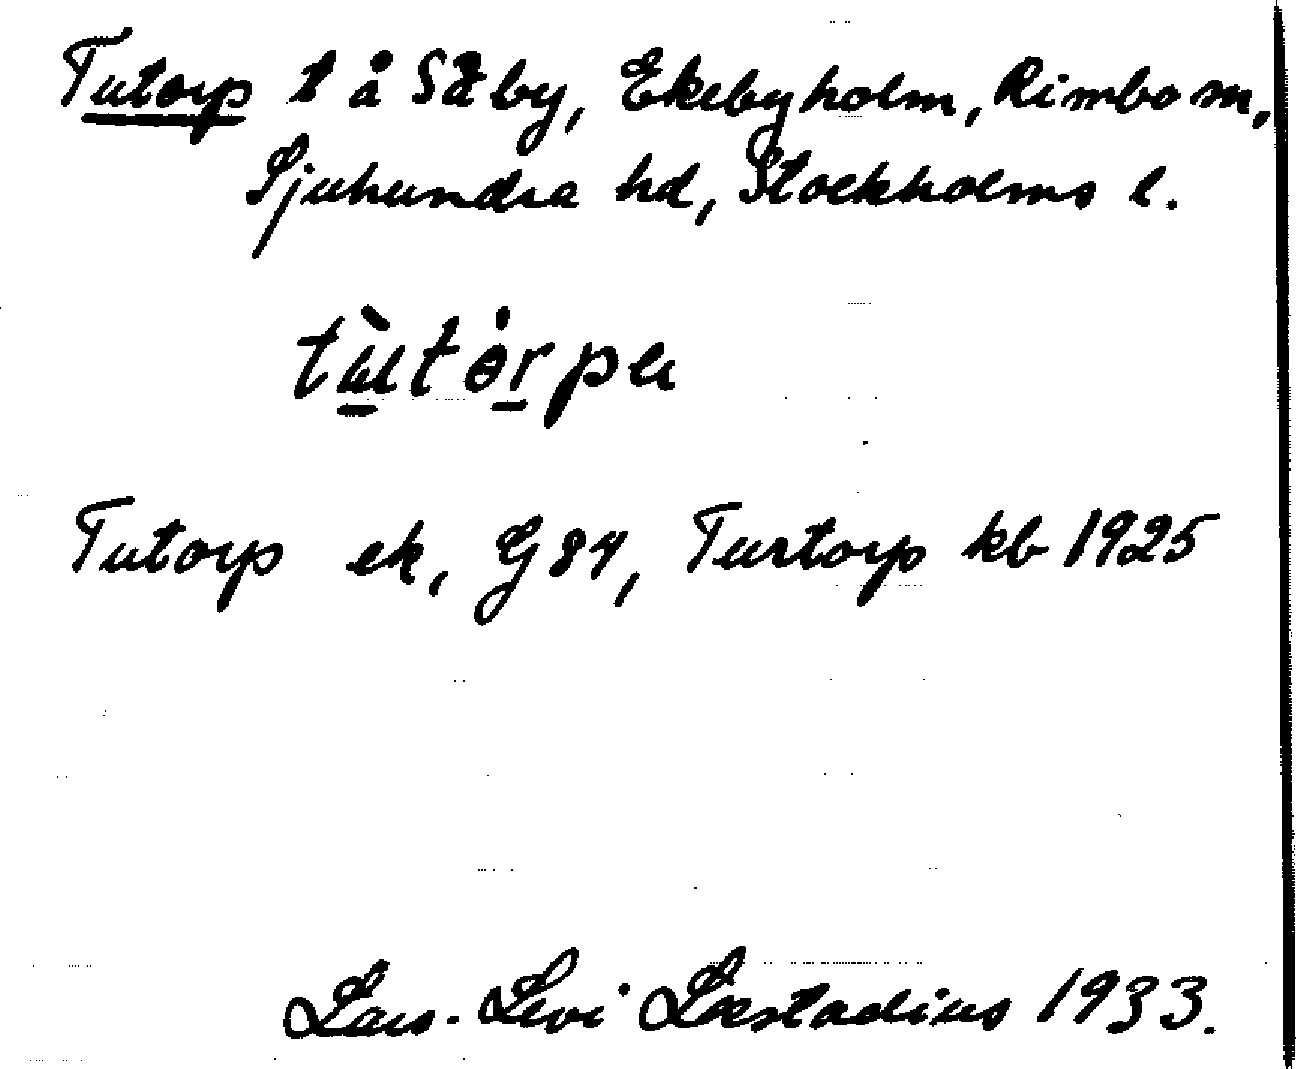 Tutorp t å Såby, Ekebyholm, Rimbo sn,
Sjuhundra hd, Stockholms l.
Tutorp ek, G 84, Turtorp kb 1925
Lars-Levi Læstadius 1933.